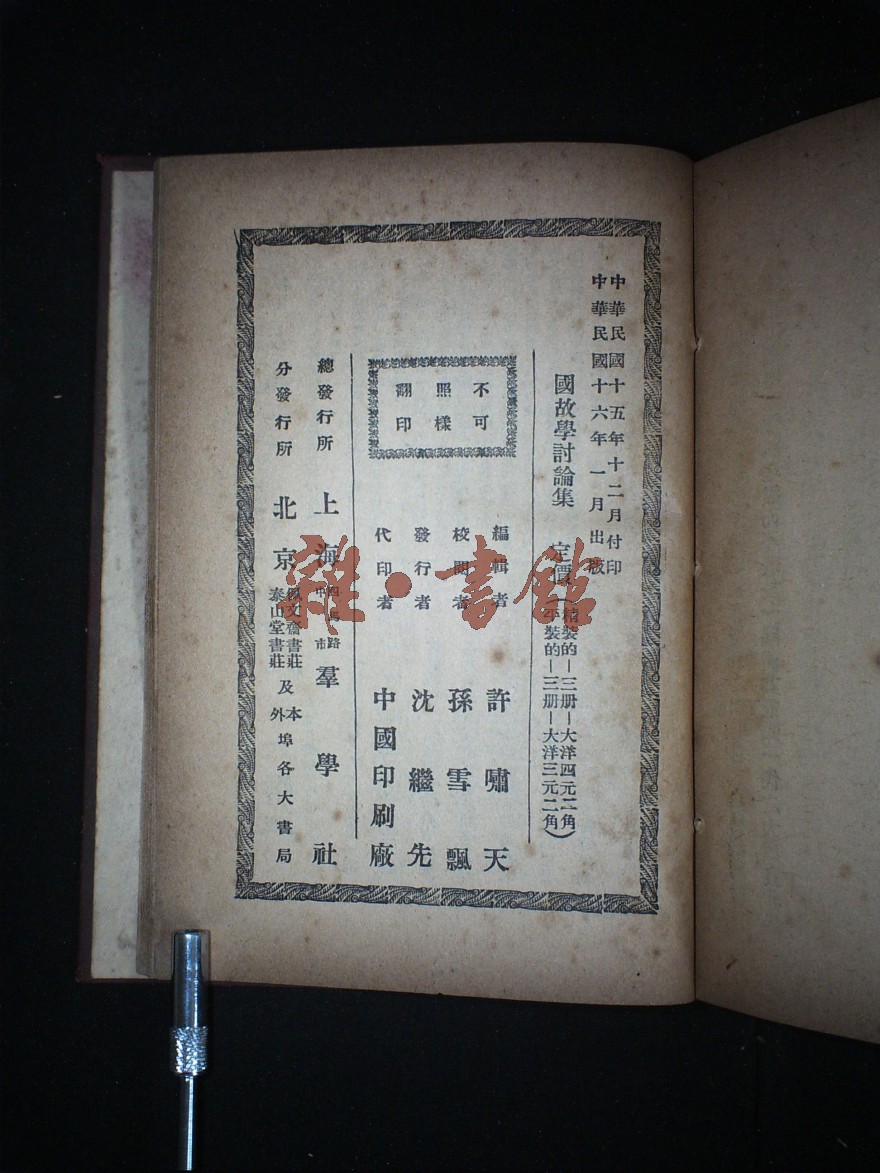 中華民國十五年十二月付印
中華民國十六年一月出版
國故學討論集
定價
(精裝的—三册—大洋四元二角
平裝的—三册—大洋三元二角)
不可
照樣
翻印
編輯者 許嘯天
校閱者 孫雪飄
發行者 沈繼先
代印者 中國印刷廠
總發行所 上海 四馬路 中市 羣學社
分發行所 北京 佩文齋書莊 泰山堂書莊 及本外埠各大書局
雜·書館